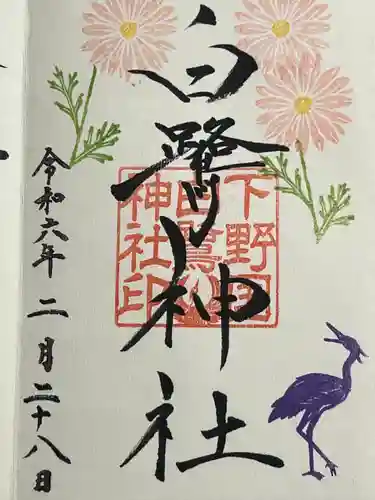 白鷺神社
下野国
白鷺
神社印
令和六年二月二十八日